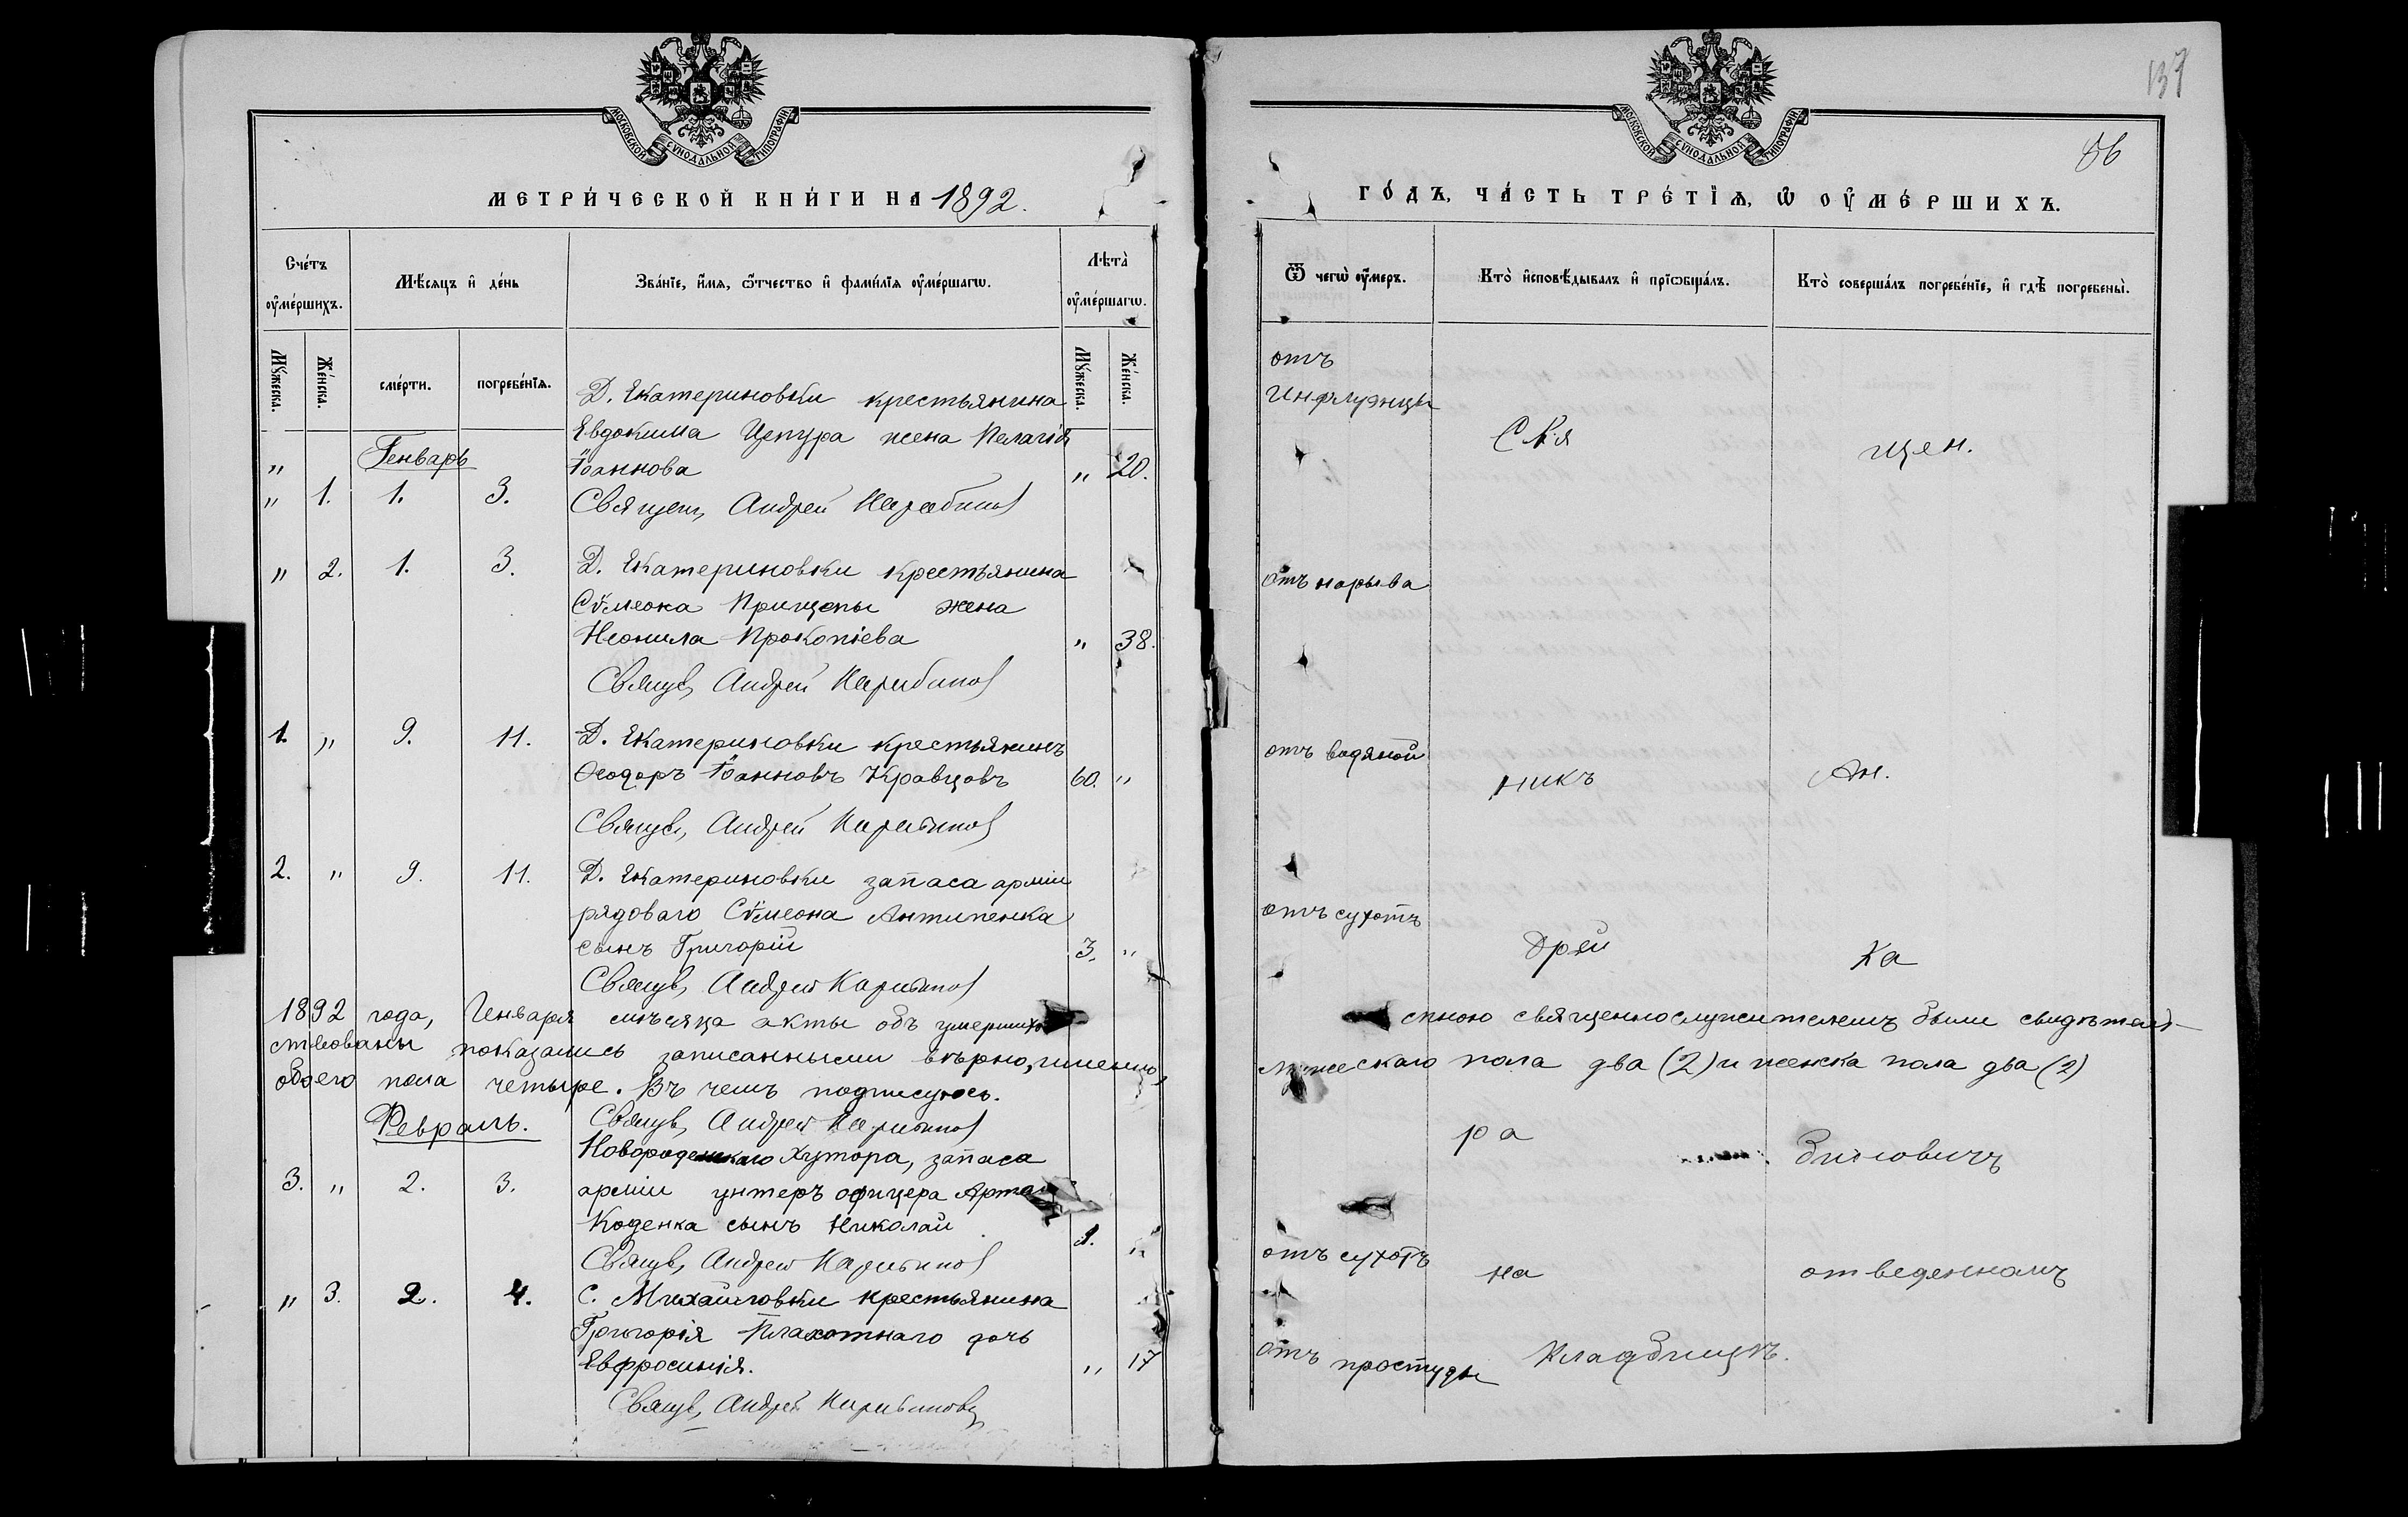 МОСКОВСКОЙ СѴНОДАЛЬНОЙ ТИПОГРАФІИ
МЕТРИ́ЧЕСКОЙ КНИ́ГИ НА 1892.
Сче́тъ оу҆ме́ршихъ.
Мѣ́сяцъ и҆ де́нь
Зва́нїе, и҆́мѧ, ѻ҆́тчество и҆ фамилі́ѧ оу҆ме́ршагѡ.
Лѣта̀ оу҆ме́ршагѡ.
Мꙋ́жеска.
Же́нска.
сме́рти.
погребе́нїѧ.
Мꙋ́жеска.
Же́нска.
Д. Екатериновки крестьянина
Евдокима Цепура жена Пелагія
„ Генварь Іоаннова „ 20.
„ 1. 1. 3. Священ, Андрей Карабинов
„ 2. 1. 3. Д. Екатериновки крестьянина
Сѵмеона Прищепы жена
Неонила Прокопіева „ 38.
Свящ, Андрей Карабинов
1. „ 9. 11. Д. Екатериновки крестьянинъ
Ѳеодоръ Іоанновъ Кравцовъ 60. „
Свящ, Андрей Карабинов
2. „ 9. 11. Д. Екатериновки запаса арміи
рядоваго Сѵмеона Антипенка
сынъ Григорій 3. „
Свящ, Андрей Карабинов
1892 года, Генваря мѣсяца акты объ умершихъ
ствованы показались записанными вѣрно, именно,
обоего пола четыре. Въ чемъ подписуюсь.
Февраль. Свящ, Андрей Карабинов
Хутора, запаса
3. „ 2. 3. арміи унтеръ офицера
Коденка сынъ Николай 1. „
Свящ, Андрей Карабинов
„ 3. 2. 4. С. Михайловки крестьянина
Григорія Плахотнаго дочь
Евфросинія. „ 17
Свящ, Андрей Карабиновъ
137
86
МОСКОВСКОЙ СѴНОДАЛЬНОЙ ТИПОГРАФІИ
ГО́ДЪ, ЧА́СТЬ ТРЕ́ТЇѦ, Ѡ҆ ОУ҆МЕ́РШИХЪ.
Ѿ чегѡ̀ оу҆́меръ.
Кто̀ и҆сповѣ́дывалъ и҆ прїѡбща́лъ.
Кто̀ соверша́лъ погребе́нїе, и҆ гдѣ̀ погребены̀.
отъ
инфлуэнцы
Свя щен.
отъ нарыва
отъ водяной
никъ Ан.
отъ сухотъ
дрей Ка
мною священнослужителемъ были свидѣтель-
мужескаго пола два (2) и женска пола два (2)
ра биновичъ
отъ сухотъ
на отведенномъ
отъ простуды кладбищѣ.